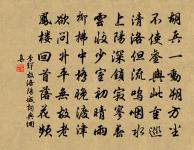 胡兵一動朔方塵
不使鑾輿此重巡
清洛但流嗚咽水
上陽深鎖寂寥春
雲收少室初晴雨
柳拂中橋晚渡津
欲問升平無故老
鳳樓回首落花頻
李郢故洛陽城詞
集